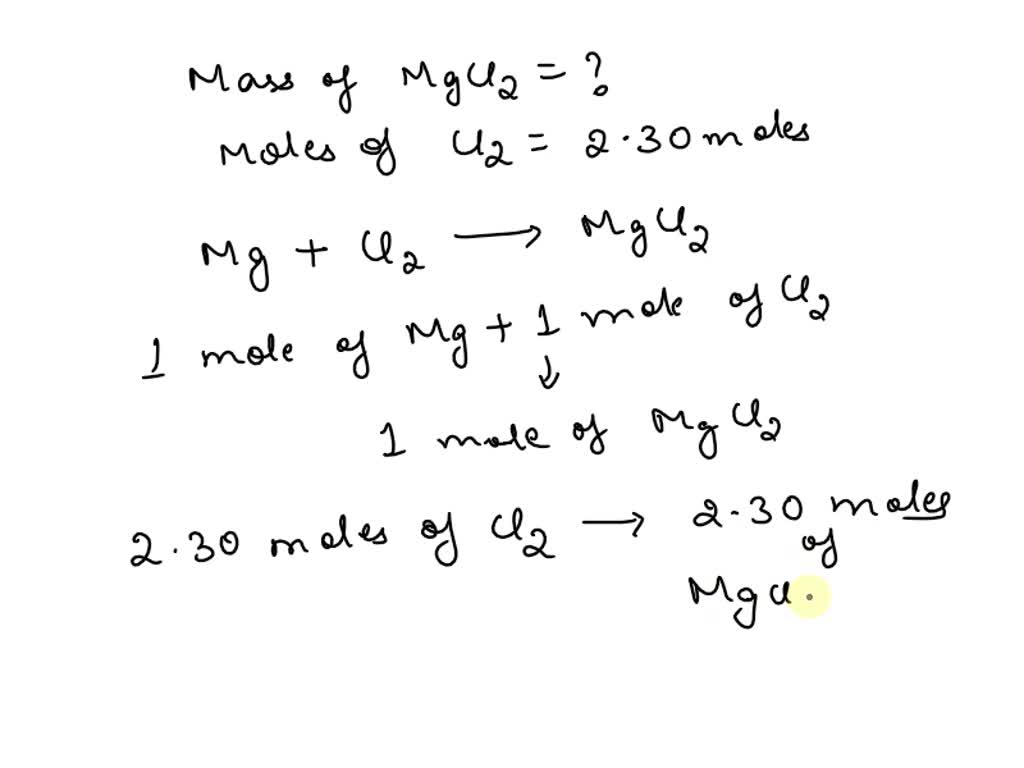 Mass of MgCl2 = ?
Moles of Cl2 = 2.30 moles
Mg + Cl2 → MgCl2
1 mole of Mg + 1 mole of Cl2
↓
1 mole of MgCl2
2.30 moles of Cl2 → 2.30 moles
of
MgCl